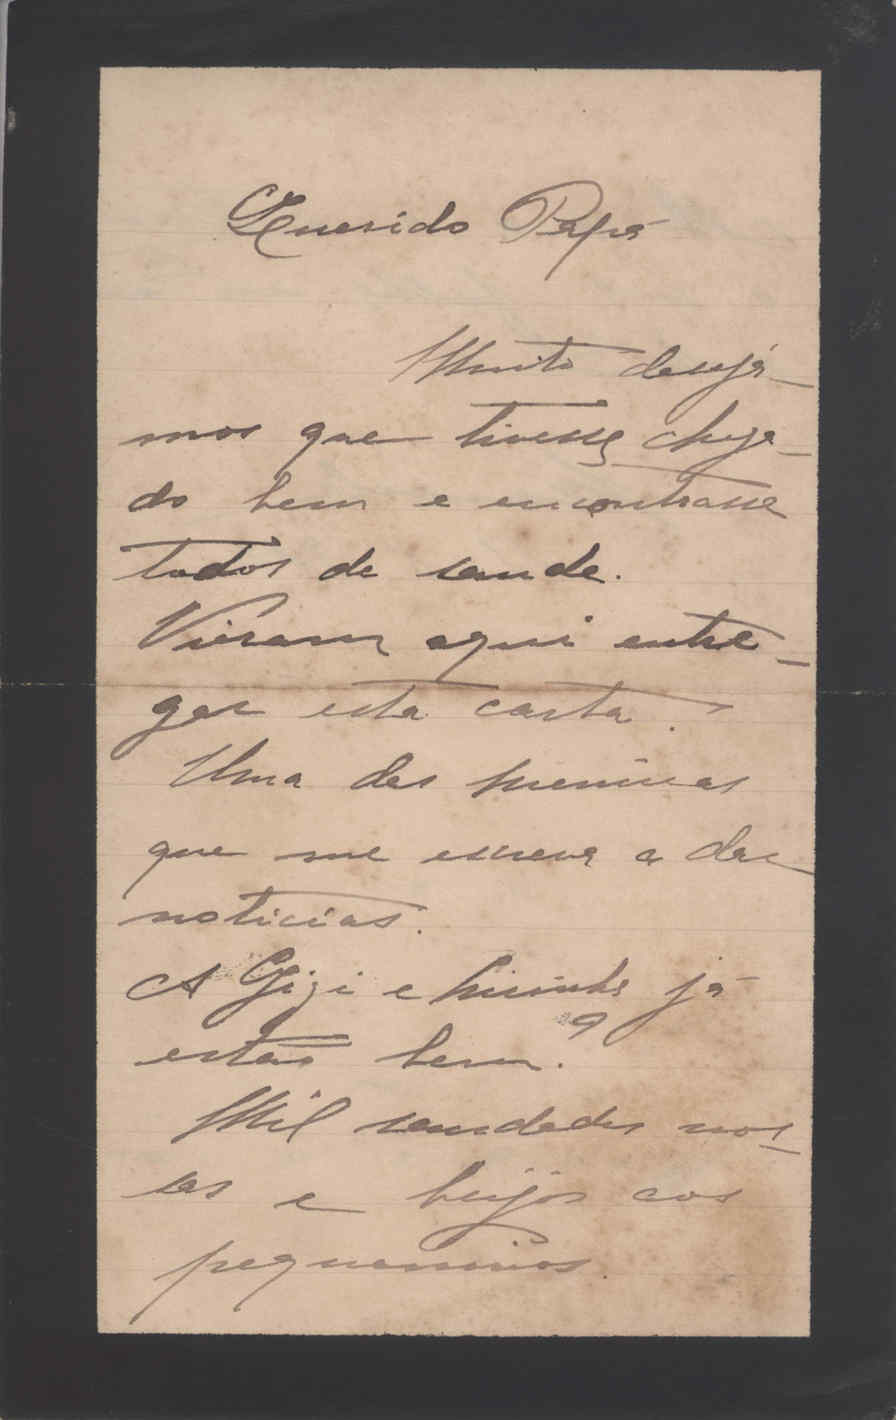 Querido Papá
Muito desejá-
mos que tivesse chega-
do bem e encontrasse
todos de saude.
Vieram aqui entre-
gar esta carta.
Uma das meninas
que me escreva a dar
noticias.
A Gigi e já
estão bem?
Mil saudades nos-
sas e beijos aos
pequeninos